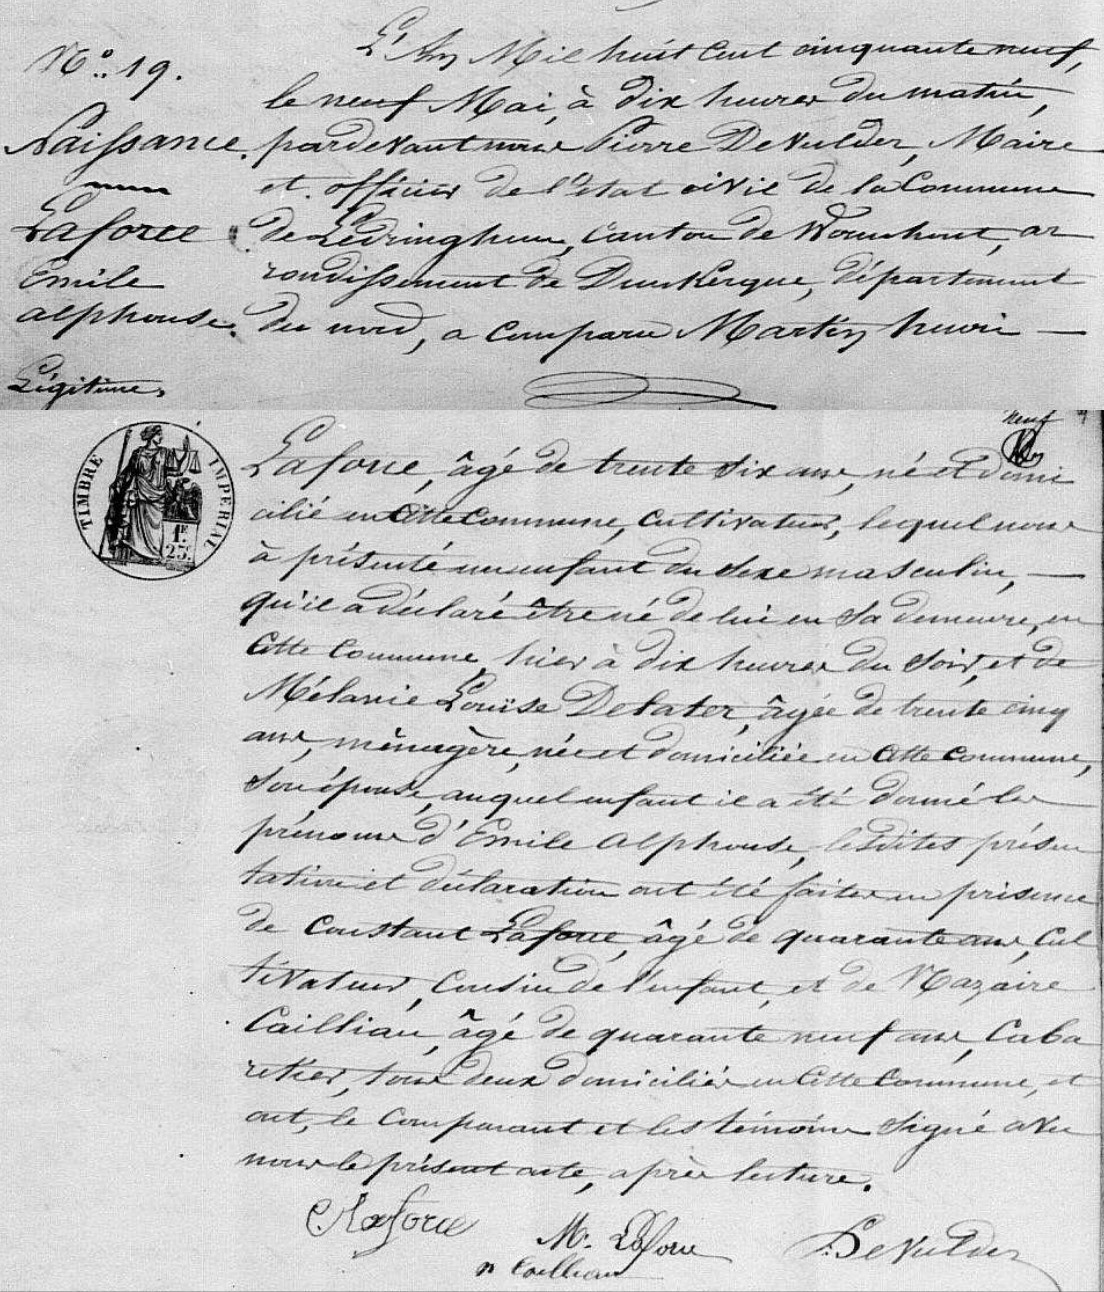 N° 19.
Naissance.
Laforce
Emile
alphonse.
Légitime.
L'An Mil huit cent cinquante neuf,
le neuf Mai, à dix heures du matin,
pardevant nous Pierre DeVulder, Maire
et officier de l'état civil de la Commune
de Ledringhem, Canton de Wormhout, ar
rondissement de Dunkerque, département
du nord, a comparu Martin henri —
neuf
TIMBRE IMPERIAL
1F.
25.
Laforce, âgé de trente six ans, né et domi
cilié en Cette Commune, Cultivateur, lequel nous
à présenté un enfant du Sexe masculin, —
qu'il a déclaré être né de lui en Sa demeure, en
Cette Commune, hier à dix heures du Soir, et de
Mélanie Louise Debater, âgée de trente cinq
ans, ménagère, née et domiciliée en Cette Commune,
Son épouse, auquel enfant il a été donné les
prénoms d'Emile Alphonse, lesdites présen
tation et déclaration ont été faites en présence
de Constant Laforce, âgé de quarante ans, Cul
tivateur, Cousin de l'enfant, et de Nazaire
Cailliau, âgé de quarante neuf ans, Caba
retier, tous deux domiciliés en Cette Commune, et
ont, le Comparant et les témoins Signé avec
nous le présent acte, après lecture.
C. Laforce
M. Laforce
P. DeVulder
n Cailliau